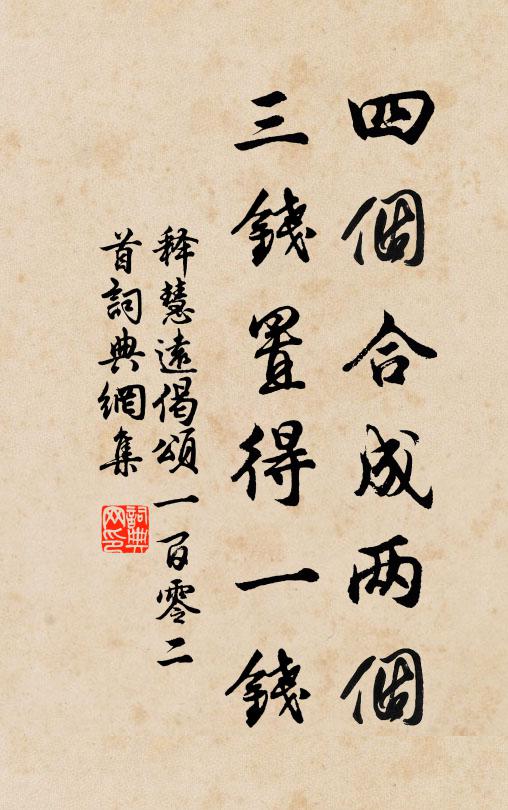 四個合成两個
三錢置得一錢
释慧遠偈頌一百零二
首詞典網集
詞典
网印